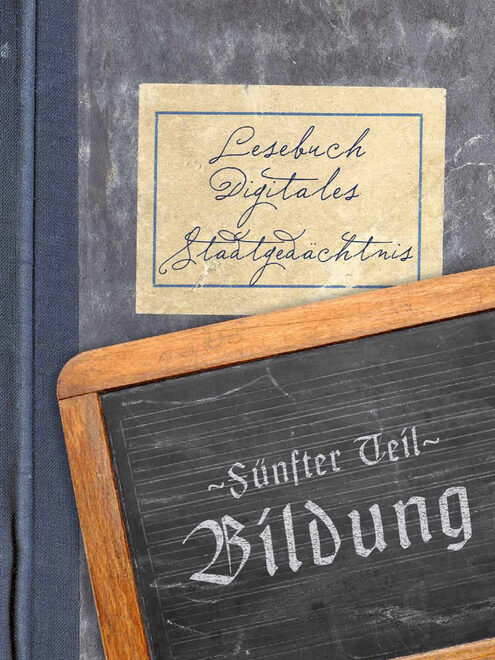 Lesebuch
Digitales
Stadtgedächtnis
~Fünfter Teil~
Bildung